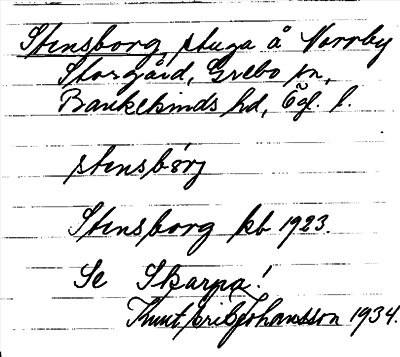 Stensborg, stuga å Norrby
Storgård, Grebo sn,
Bankekinds hd, Ögl. l.
stensbórj
Stensborg kb 1923.
Se Skarpa!
Knut Johansson 1934.